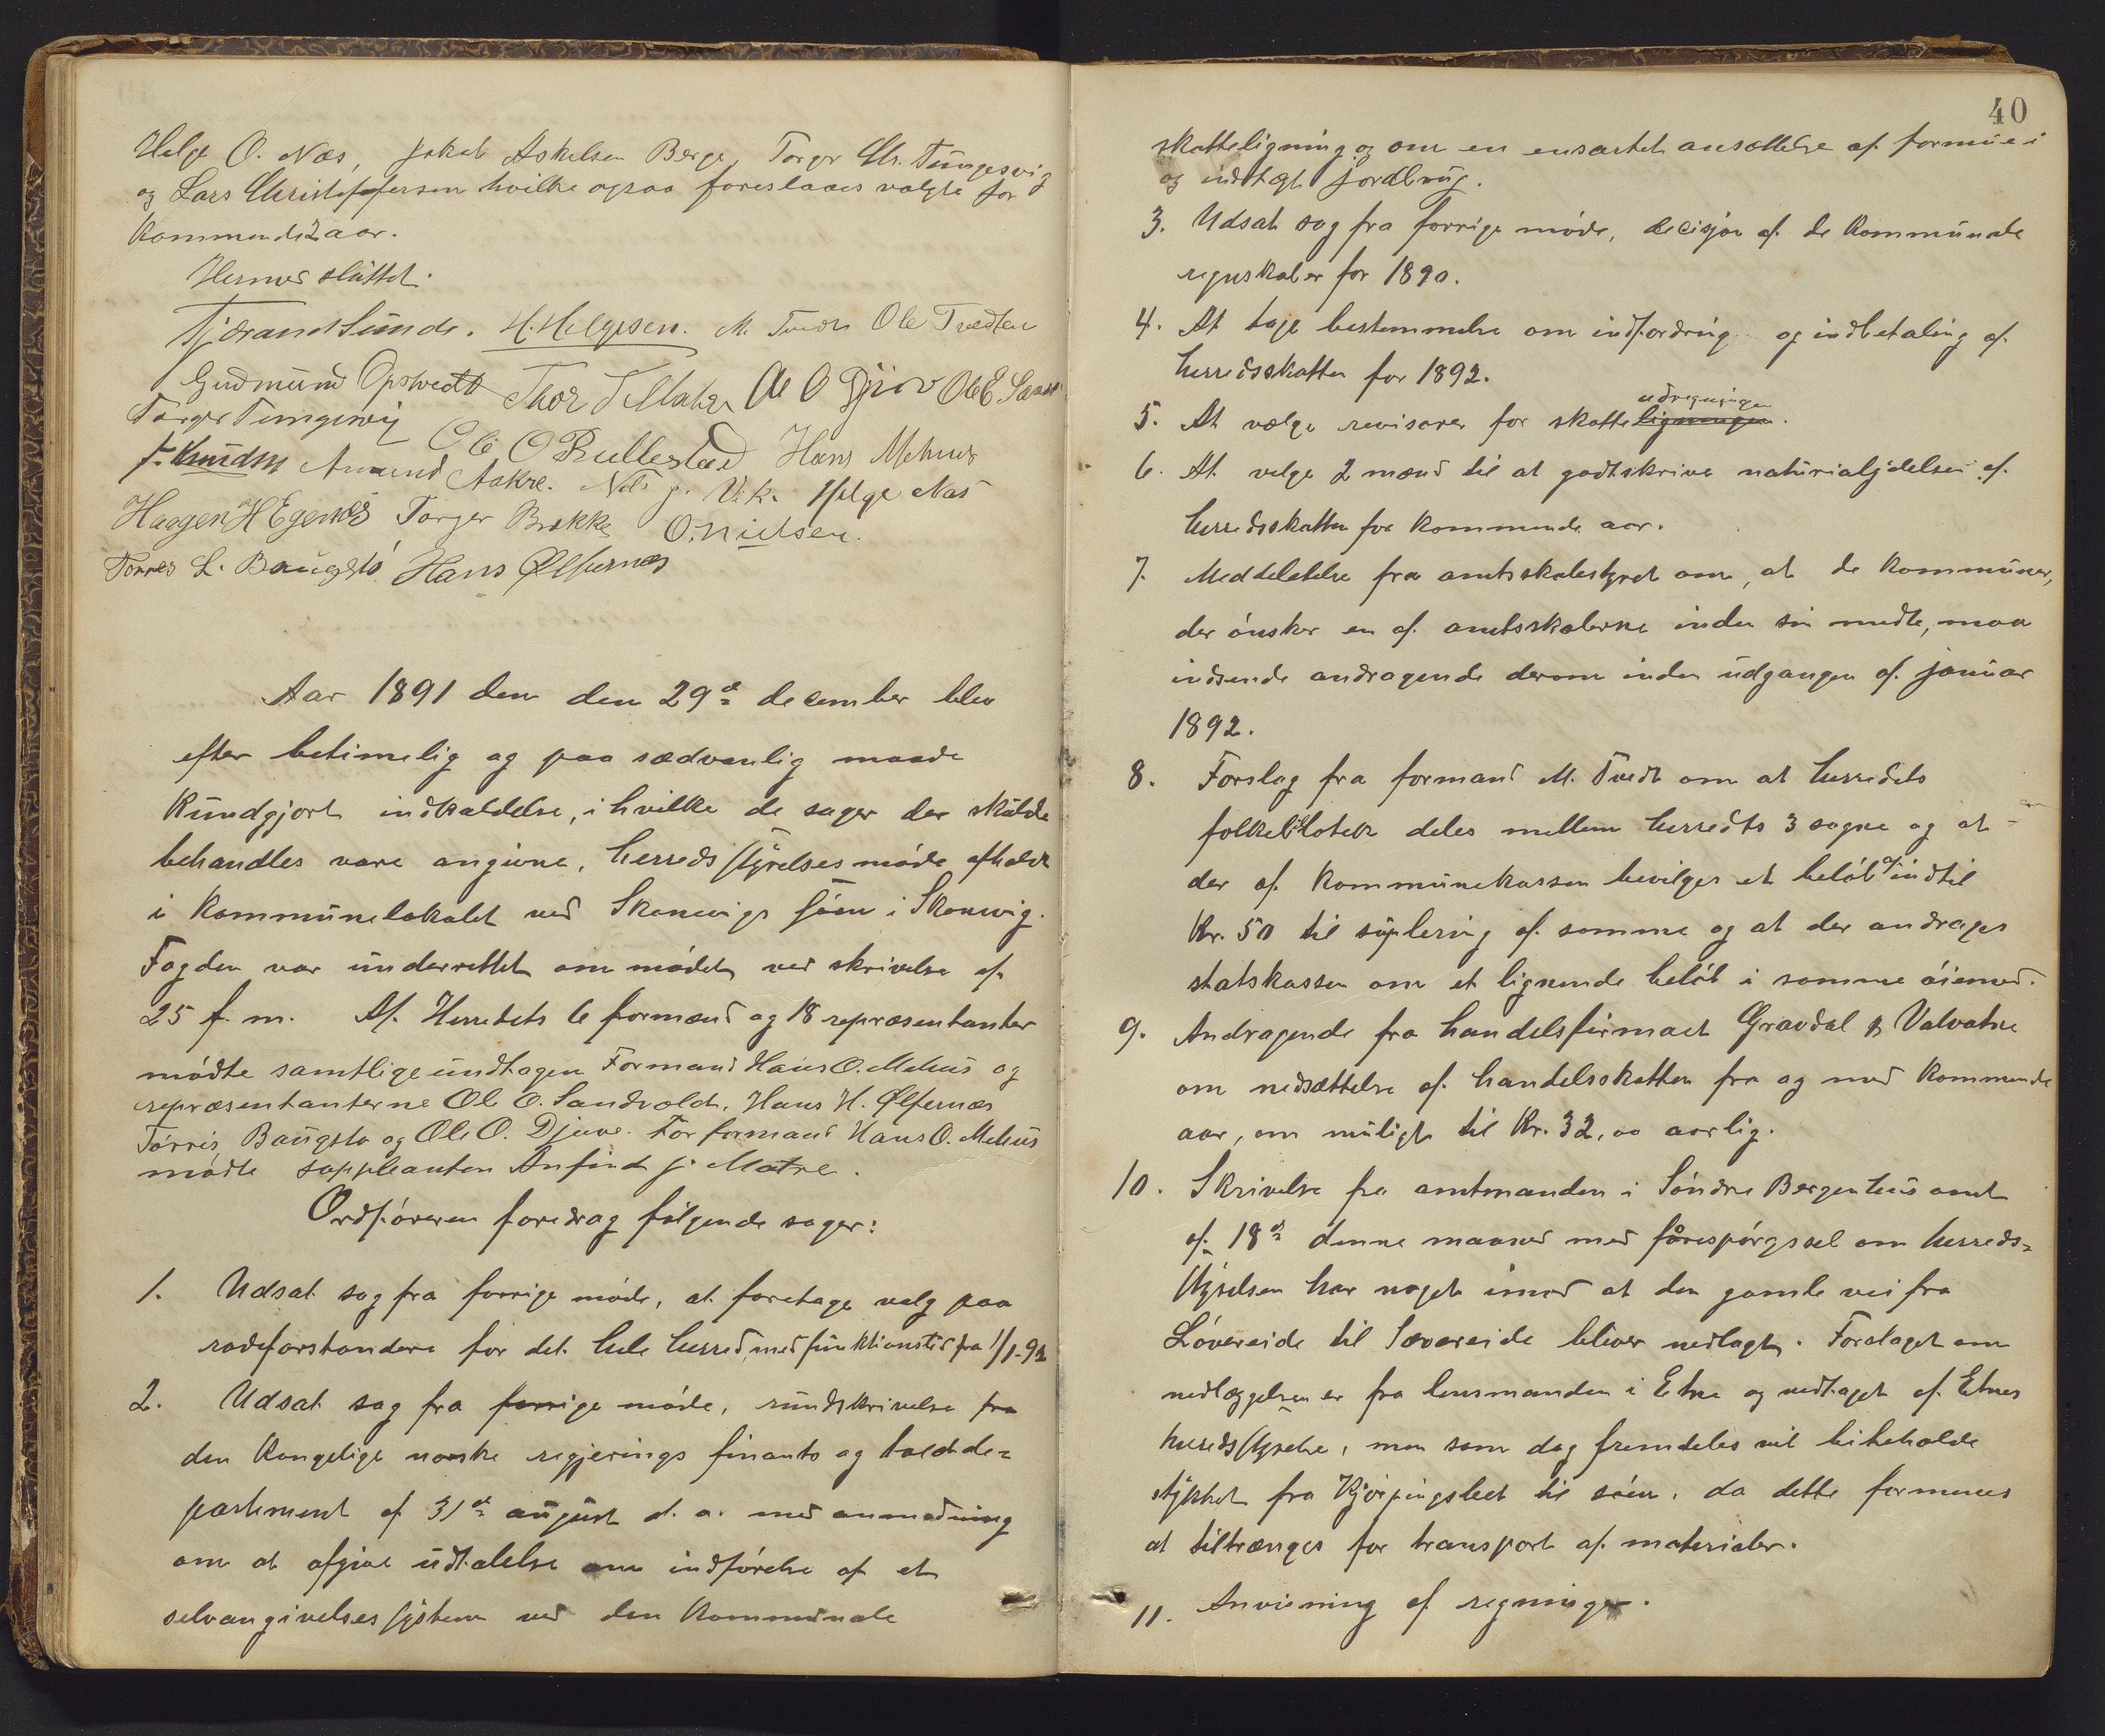 Helge O. Næs, Jakob Askelsen Berge, Torger Chr. Tungesvig
og Lars Christoffersen hvilke ogsaa foreslaaes valgte for
kommende 2 aar.
Hermed sluttet.
Tjærand Sunde. H. Helgesen. M. Tvedt Ole Tvedten
Gudmund Opstvedt Thor T Matre Ole O Djuv Ole E.
Torger Tungesvig Ole O Rullestad Hans Mehus
F. Knudsen Amund Aakre. Nils J. Vik. Helge Næs
Haagen H Egenes Torger Brekke O. Nielsen.
Tørres L. Baugstø Hans Ølfernes
Aar 1891 den den 29de december blev
efter betimelig og paa sædvanlig maade
kundgjort indkaldelse, i hvilke de sager der skulde
behandles vare angivne, herredsstyrelsesmøde afholdt
i kommunelokalet ved Skonevigs søen i Skonevig.
Fogden var underrettet om mødet ved skrivelse af
25 f. m. Af Herredets 6 formænd og 18 repræsentanter
mødte samtlige undtagen Formand Hans O. Mehus og
repræsentanterne Ole O. Sandvold, Hans H. Ølfernes
Tørris Baugstø og Ole O. Djuve. For formand Hans O. Mehus
mødte suppleanten Anfind J. Matre.
Ordføreren foredrog følgende sager:
1. Udsat sag fra forrige møde, at foretage valg paa
rodeforstandere for det hele herred, med funktionstid fra 1/1-92
2. Udsat sag fra forrige møde, rundskrivelse fra
den kongelige norske regjerings finants og tolddе=
partement af 31te august d. a. med anmodning
om at afgive udtalelse om indførelse af et
selvangivelsessystem ved den kommunale
40
skatteligning og om en ensartet ansættelse af formue i
og indtægt jordbrug.
3. Udsat sag fra forrige møde, decisjon af de kommunale
regnskaber for 1890.
4. At tage bestemmelse om indfordring og indbetaling af
herredsskatten for 1892.
udregningen
5. At vælge revisorer for skatteligningen.
6. At velge 2 mænd til at godtskrive naturialydelsen af
herredsskatten for kommende aar.
7. Meddelelse fra amtsskolestyret om, at de kommuner,
der ønsker en af amtsskolerne inden sin midte, maa
indsende andragende derom inden udgangen af januar
1892.
8. Forslag fra formand M. Tvedt om at herredets
folkebibliotek deles mellem herredts 3 sogne og at
der af kommunekassen bevilges et beløb af indtil
Kr. 50 til suplering af samme og at der andrages
statskassen om et lignende beløb i samme øiemed.
9. Andragende fra handelsfirmaet Gravdal & Valvatne
om nedsættelse af handelsskatten fra og med kommende
aar, om muligt til Kr. 32,00 aarlig.
10. Skrivelse fra amtmanden i Søndre Bergenhus amt
af 18de denne maaned med forespørgssel om herreds=
styrelsen har noget imod at den gamle vei fra
Løvereide til Sævareide bliver nedlagt. Forslaget om
nedlæggelsen er fra lensmanden i Etne og vedtaget af Etnes
herredsstyrelse, men som dog fremdeles vil bibeholde
stykket fra Kjørpingsleet til søen, da dette formenes
at tiltrænges for transport af materialer.
11. Anvisning af regninger.